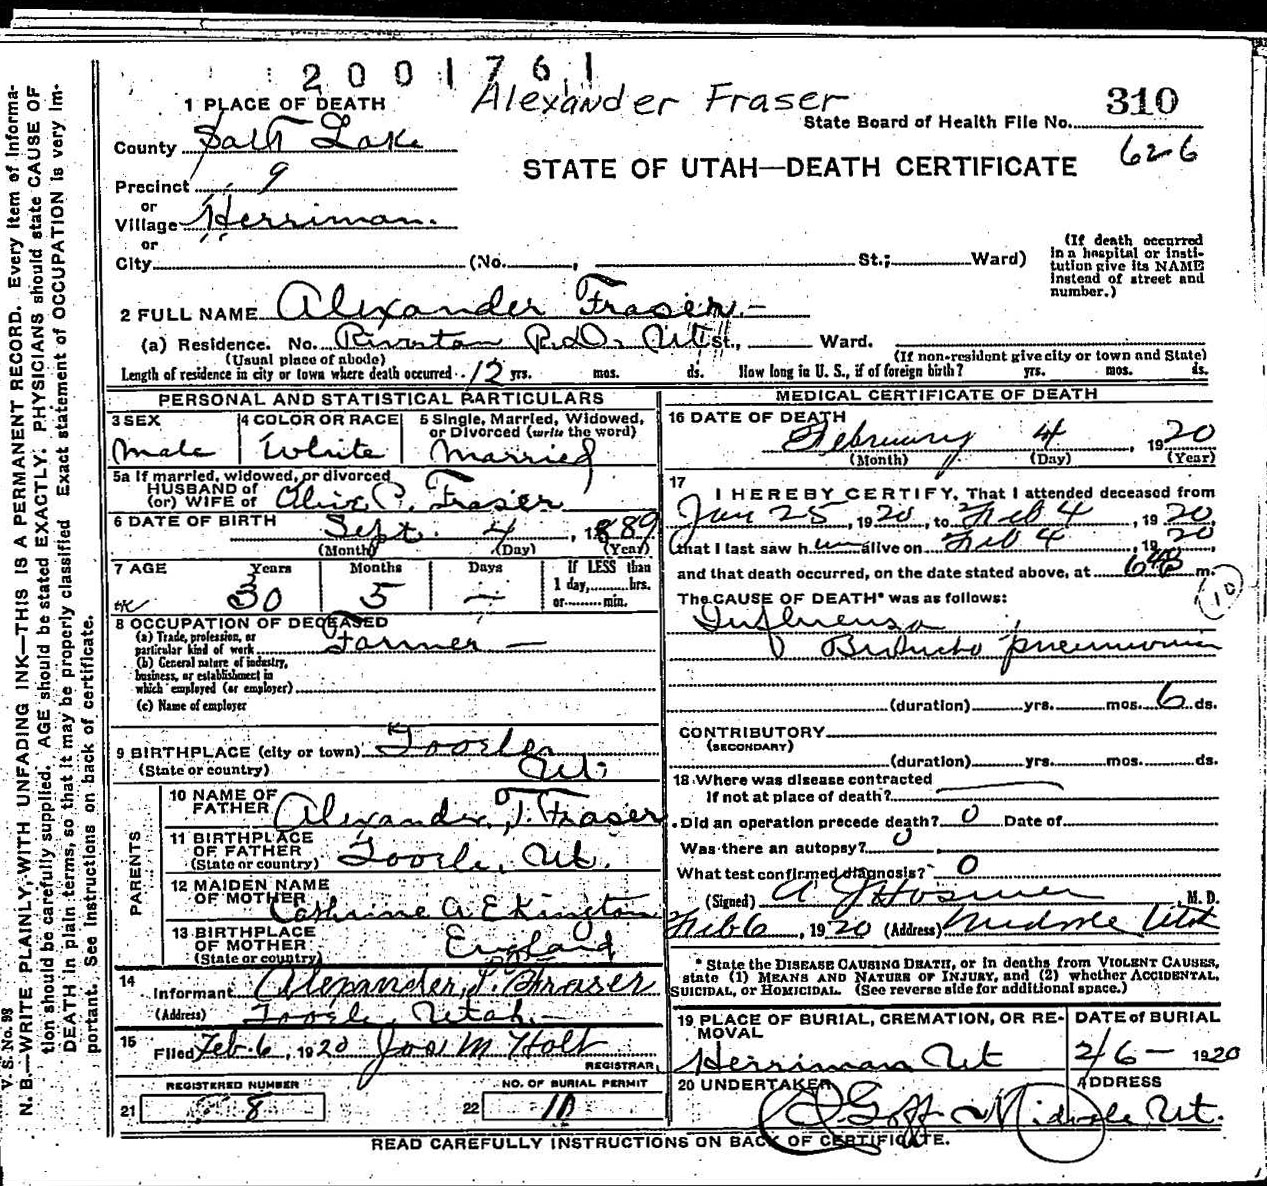 2001761
Alexander Fraser
310
State Board of Health File No.
626
1 PLACE OF DEATH
County Salt Lake
STATE OF UTAH—DEATH CERTIFICATE
Precinct 9
or
Village Herriman.
or
City (No. , St.; Ward)
(If death occurred in a hospital or institution give its NAME instead of street and number.)
2 FULL NAME Alexander Fraser.—
(a) Residence. No. Riverton R.D. Ut St., Ward.
(Usual place of abode)
(If non-resident give city or town and State)
Length of residence in city or town where death occurred 12 yrs. mos. ds. How long in U. S., if of foreign birth? yrs. mos. ds.
PERSONAL AND STATISTICAL PARTICULARS
3 SEX
Male
4 COLOR OR RACE
White
5 Single, Married, Widowed, or Divorced (write the word)
Married
5a If married, widowed, or divorced
HUSBAND of
(or) WIFE of C. Fraser
6 DATE OF BIRTH
Sept. 4, 1889
(Month) (Day) (Year)
7 AGE Years Months Days If LESS than
1 day, hrs.
or min.
30 5 —
8 OCCUPATION OF DECEASED
(a) Trade, profession, or
particular kind of work Farmer —
(b) General nature of industry,
business, or establishment in
which employed (or employer)
(c) Name of employer
9 BIRTHPLACE (city or town) Tooele
(State or country) Ut.
PARENTS
10 NAME OF
FATHER Alexander J. Fraser
11 BIRTHPLACE
OF FATHER
(State or country) Tooele, Ut.
12 MAIDEN NAME
OF MOTHER Cathrine A. Elkington
13 BIRTHPLACE
OF MOTHER
(State or country) England
14
Informant Alexander J. Fraser
(Address) Tooele, Utah.—
15
Filed Feb. 6, 1920 Jos M Holt
REGISTRAR
REGISTERED NUMBER
21 8
NO. OF BURIAL PERMIT
22 10
MEDICAL CERTIFICATE OF DEATH
16 DATE OF DEATH
February 4, 1920
(Month) (Day) (Year)
17
I HEREBY CERTIFY, That I attended deceased from
Jan 25, 1920, to Feb 4, 1920,
that I last saw him alive on Feb 4, 1920,
and that death occurred, on the date stated above, at m.
10
The CAUSE OF DEATH* was as follows:
Influenza
Broncho pneumonia
(duration) yrs. mos. 6 ds.
CONTRIBUTORY
(SECONDARY)
(duration) yrs. mos. ds.
18 Where was disease contracted
If not at place of death?
Did an operation precede death? 0 Date of
Was there an autopsy? 0
What test confirmed diagnosis? 0
(Signed) A J Hosmer M. D.
Feb 6, 1920 (Address) Midvale Utah
* State the DISEASE CAUSING DEATH, or in deaths from VIOLENT CAUSES,
state (1) MEANS AND NATURE OF INJURY, and (2) whether ACCIDENTAL,
SUICIDAL, or HOMICIDAL. (See reverse side for additional space.)
19 PLACE OF BURIAL, CREMATION, OR REMOVAL
Herriman Ut
DATE of BURIAL
2/6— 1920
20 UNDERTAKER
Goff
ADDRESS
Midvale Ut.
READ CAREFULLY INSTRUCTIONS ON BACK OF CERTIFICATE.
V. S. No. 98
N. B.—WRITE PLAINLY, WITH UNFADING INK—THIS IS A PERMANENT RECORD. Every item of informa-
tion should be carefully supplied. AGE should be stated EXACTLY. PHYSICIANS should state CAUSE OF
DEATH in plain terms, so that it may be properly classified. Exact statement of OCCUPATION is very im-
portant. See instructions on back of certificate.